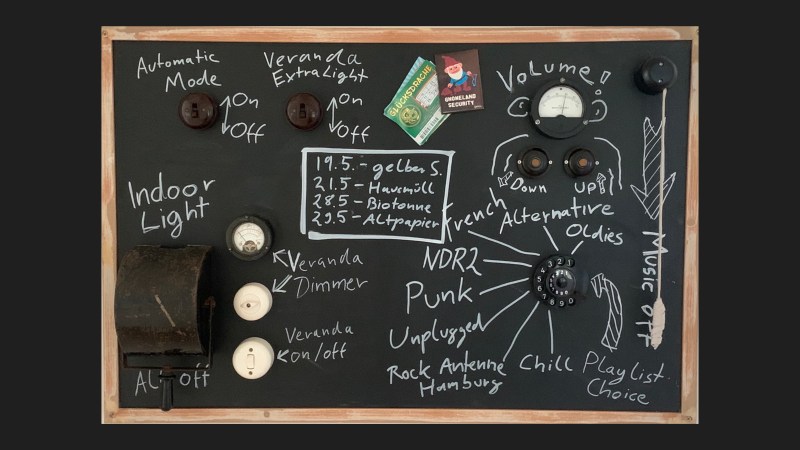 Automatic
Mode
On
Off
Veranda
Extra Light
On
Off
GLÜCKSDRACHE
GNOMELAND
SECURITY
Volume!
Down
Up
19.5. - gelber S.
21.5 - Hausmüll
28.5 - Biotonne
29.5 - Altpapier
Indoor
Light
Veranda
Dimmer
Veranda
on/off
off
French
Alternative
Oldies
NDR2
Punk
Unplugged
Rock Antenne
Hamburg
Chill
Playlist
Choice
Music Off